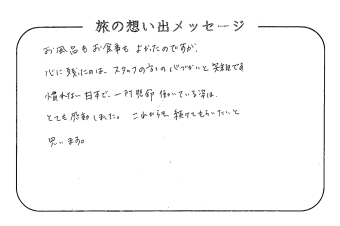 旅の想い出メッセージ
お風呂もお食事もよかったのですが、
心に残ったのは、スタッフの方の心づかいと笑顔です
慣れない日本で、一所懸命働いている姿は、
とても感動しました。これからも続けてもらいたいと
思います。